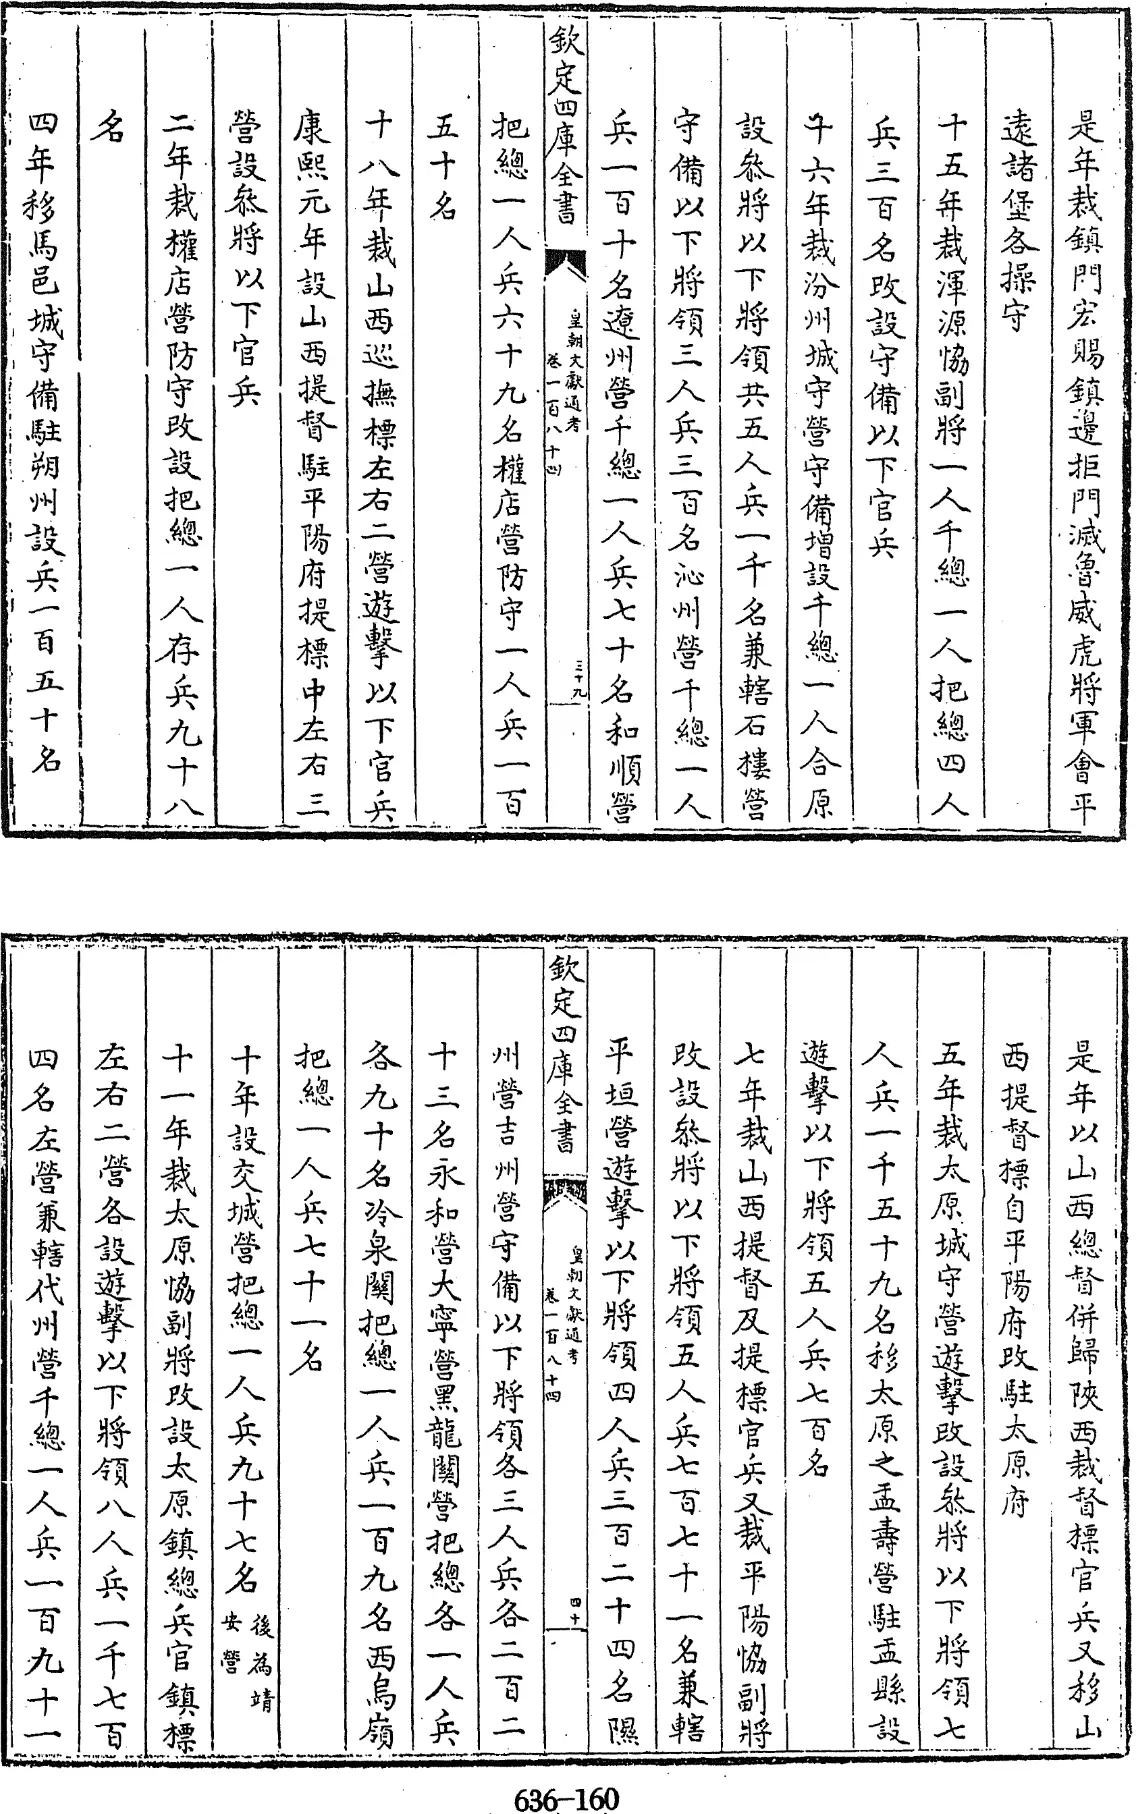 是年裁鎮門宏賜鎮邊拒門滅魯威虎將軍會平
遠諸堡各操守
十五年裁渾源協副將一人千總一人把總四人
兵三百名改設守備以下官兵
十六年裁汾州城守營守備增設千總一人合原
設叅將以下將領共五人兵一千名兼轄石樓營
守備以下將領三人兵三百名沁州營千總一人
兵一百十名遼州營千總一人兵七十名和順營
欽定四庫全書
皇朝文獻通考
卷一百八十四
三十九
把總一人兵六十九名權店營防守一人兵一百
五十名
十八年裁山西巡撫標左右二營遊擊以下官兵
康熙元年設山西提督駐平陽府提標中左右三
營設叅將以下官兵
二年裁權店營防守改設把總一人存兵九十八
名
四年移馬邑城守備駐朔州設兵一百五十名
是年以山西總督併歸陝西裁督標官兵又移山
西提督標自平陽府改駐太原府
五年裁太原城守營遊擊改設叅將以下將領七
人兵一千五十九名移太原之盂壽營駐盂縣設
遊擊以下將領五人兵七百名
七年裁山西提督及提標官兵又裁平陽協副將
改設叅將以下將領五人兵七百七十一名兼轄
平垣營遊擊以下將領四人兵三百二十四名隰
欽定四庫全書
皇朝文獻通考
卷一百八十四
四十
州營吉州營守備以下將領各三人兵各二百二
十三名永和營大寧營黑龍關營把總各一人兵
各九十名冷泉關把總一人兵一百九名西烏嶺
把總一人兵七十一名
十年設交城營把總一人兵九十七名後為靖安營
十一年裁太原協副將改設太原鎮總兵官鎮標
左右二營各設遊擊以下將領八人兵一千七百
四名左營兼轄代州營千總一人兵一百九十一
636-160